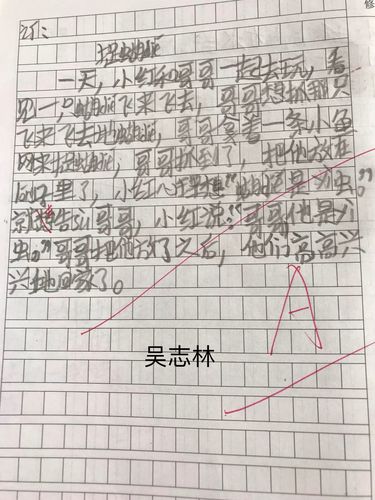 江：
捉蜻蜓
一天，小红和哥哥一起去玩，看
见一只蜻蜓飞来飞去，哥哥想抓那只
飞来飞去地蜻蜓，哥哥拿着一条小鱼
网来捉蜻蜓，哥哥抓到了，把他放在
里了，小红心里想“蜻蜓是虫。”
就告诉哥哥，小红说：“哥哥他是
虫。”哥哥把他放了之后，他们高高兴
兴地回家了。
A
吴志林
修